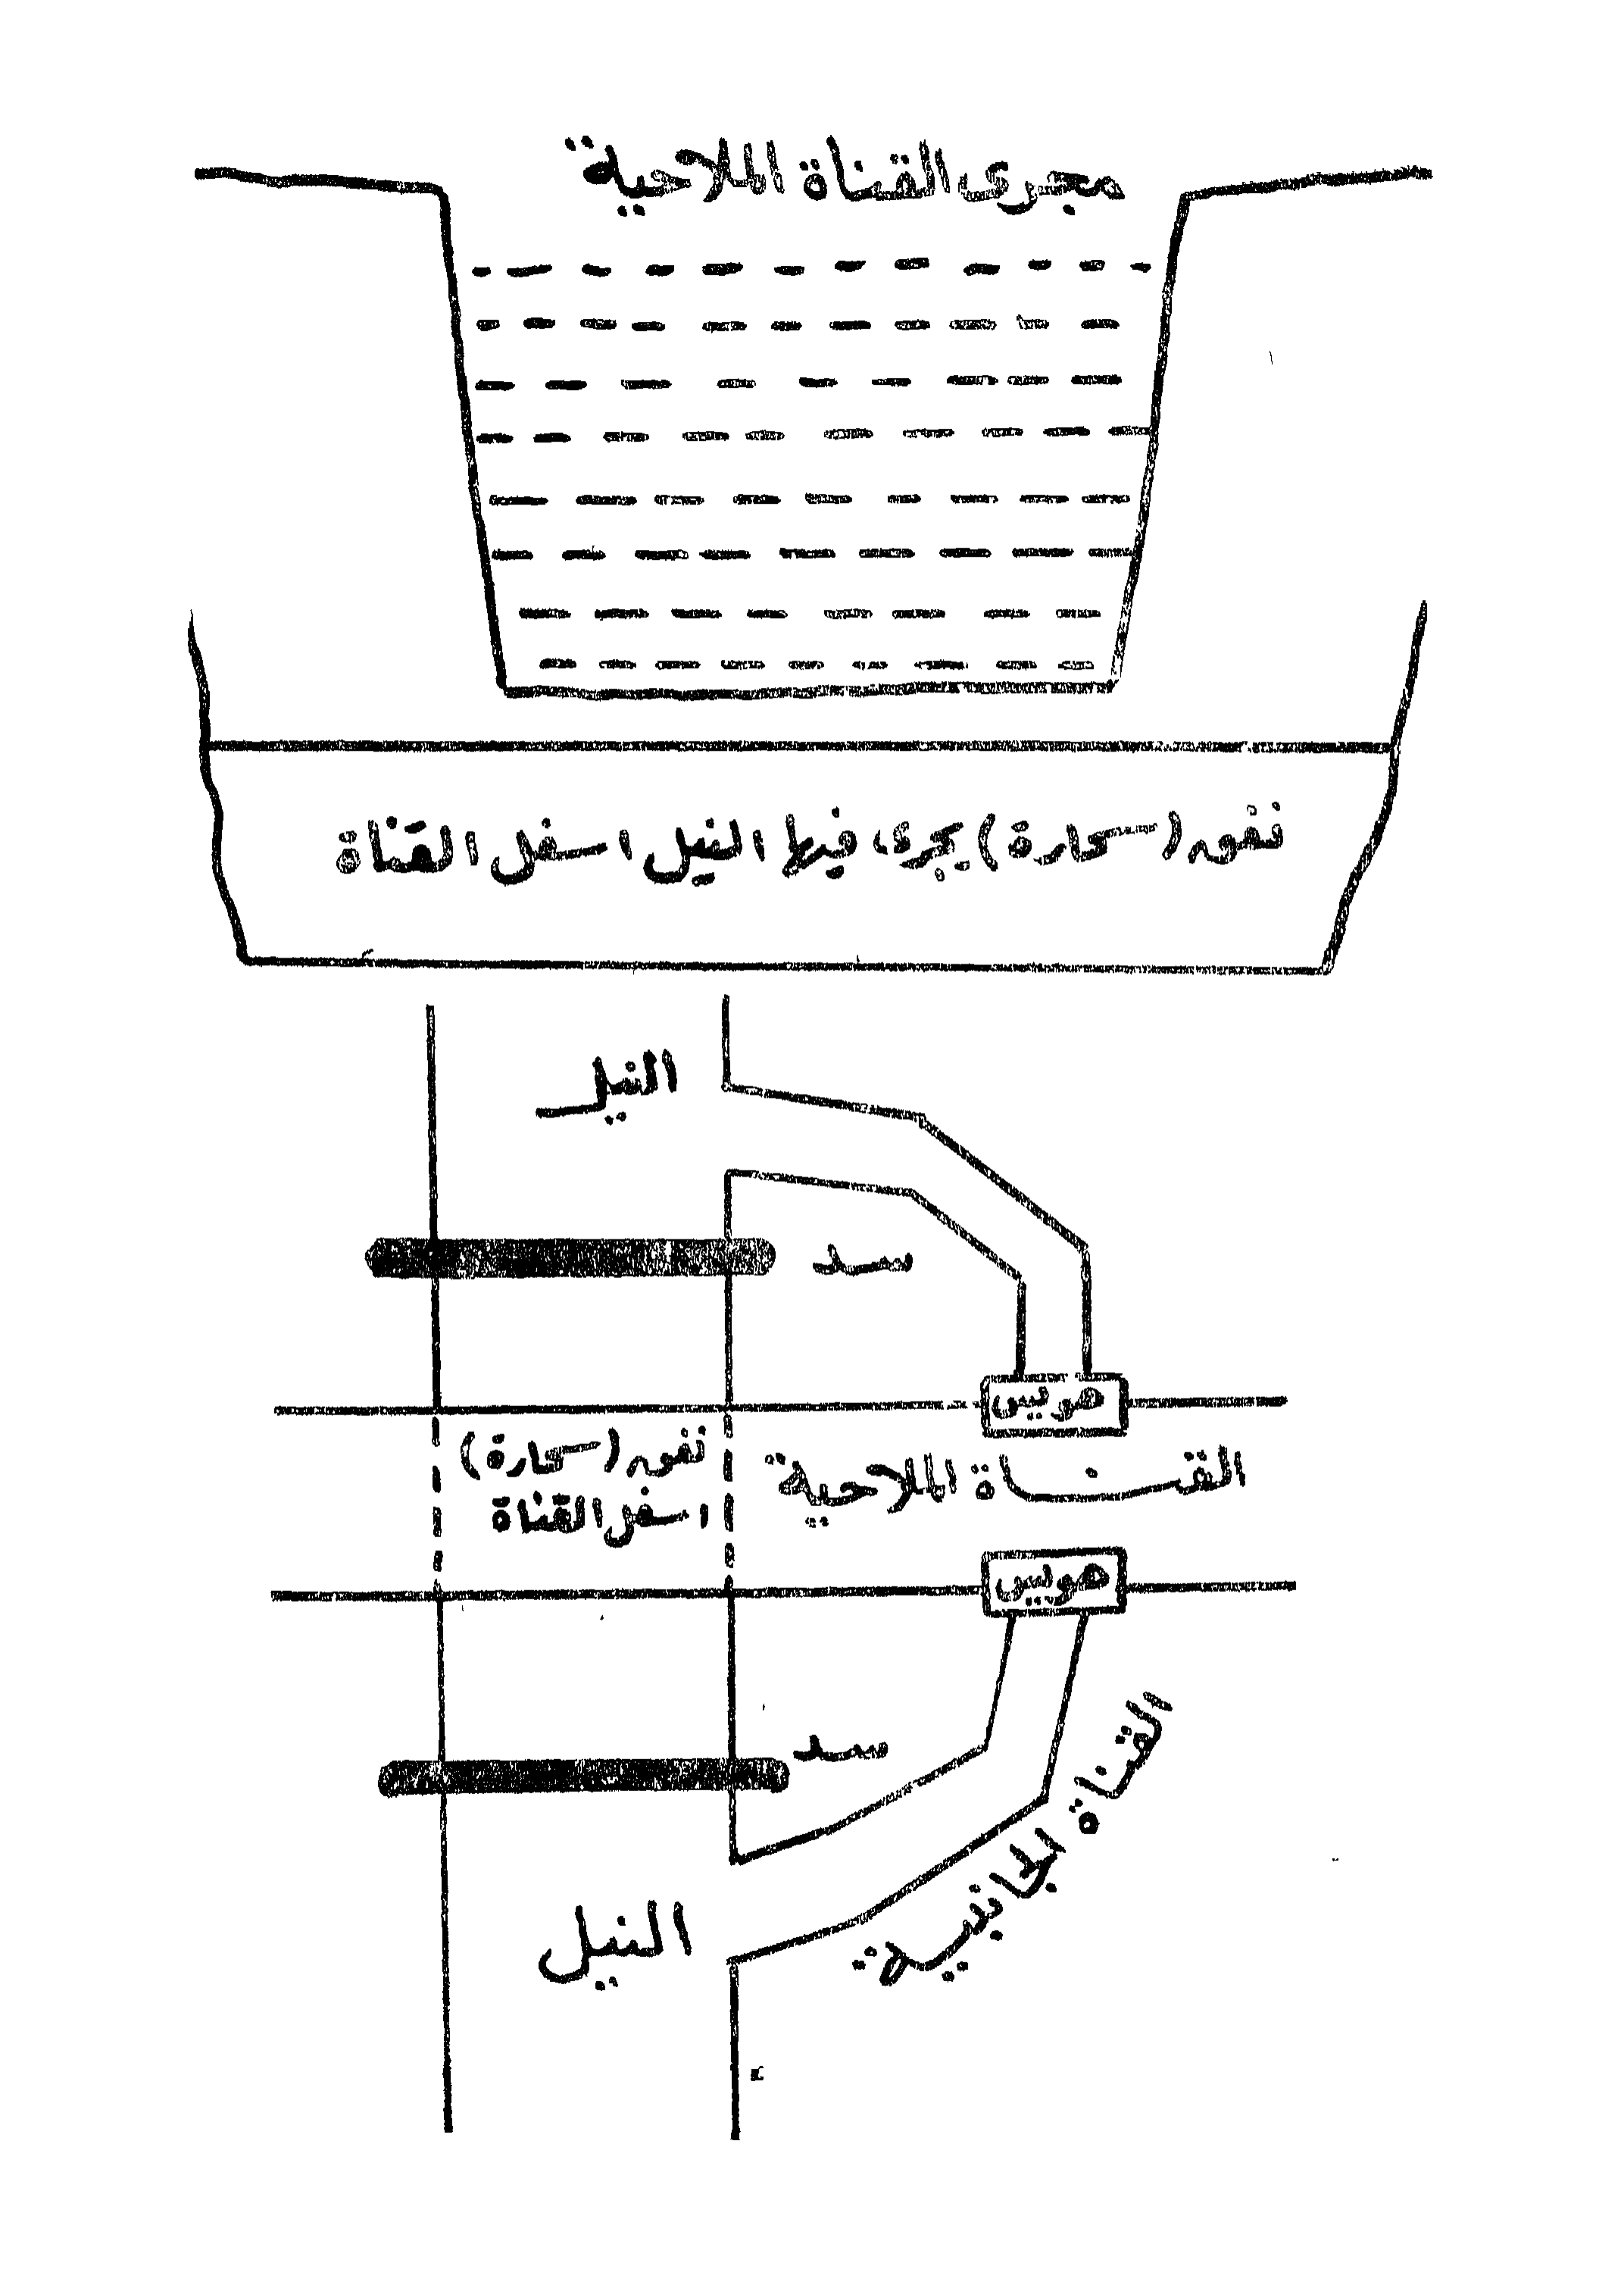 مجرى القناة الملاحية
نفق (سحارة) يجرى فيها النيل اسفل القناة
النيل
سد
هويس
نفق (سحارة)
اسفل القناة
القناة الملاحية
هويس
سد
القناة الجانبية
النيل